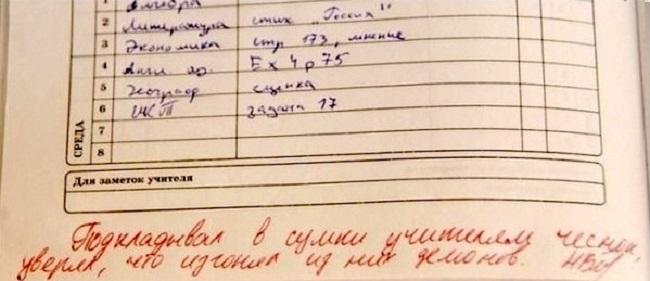 1 Алгебра
2 Литература стих „Россия"
3 Экономика стр 173, мнение
4 Англ. яз. Ex 4 p 75
5 географ сценка
6 задача 17
7
8
СРЕДА
Для заметок учителя
Подкладывал в сумки учителям чеснок,
уверял, что изгонял из них демонов.